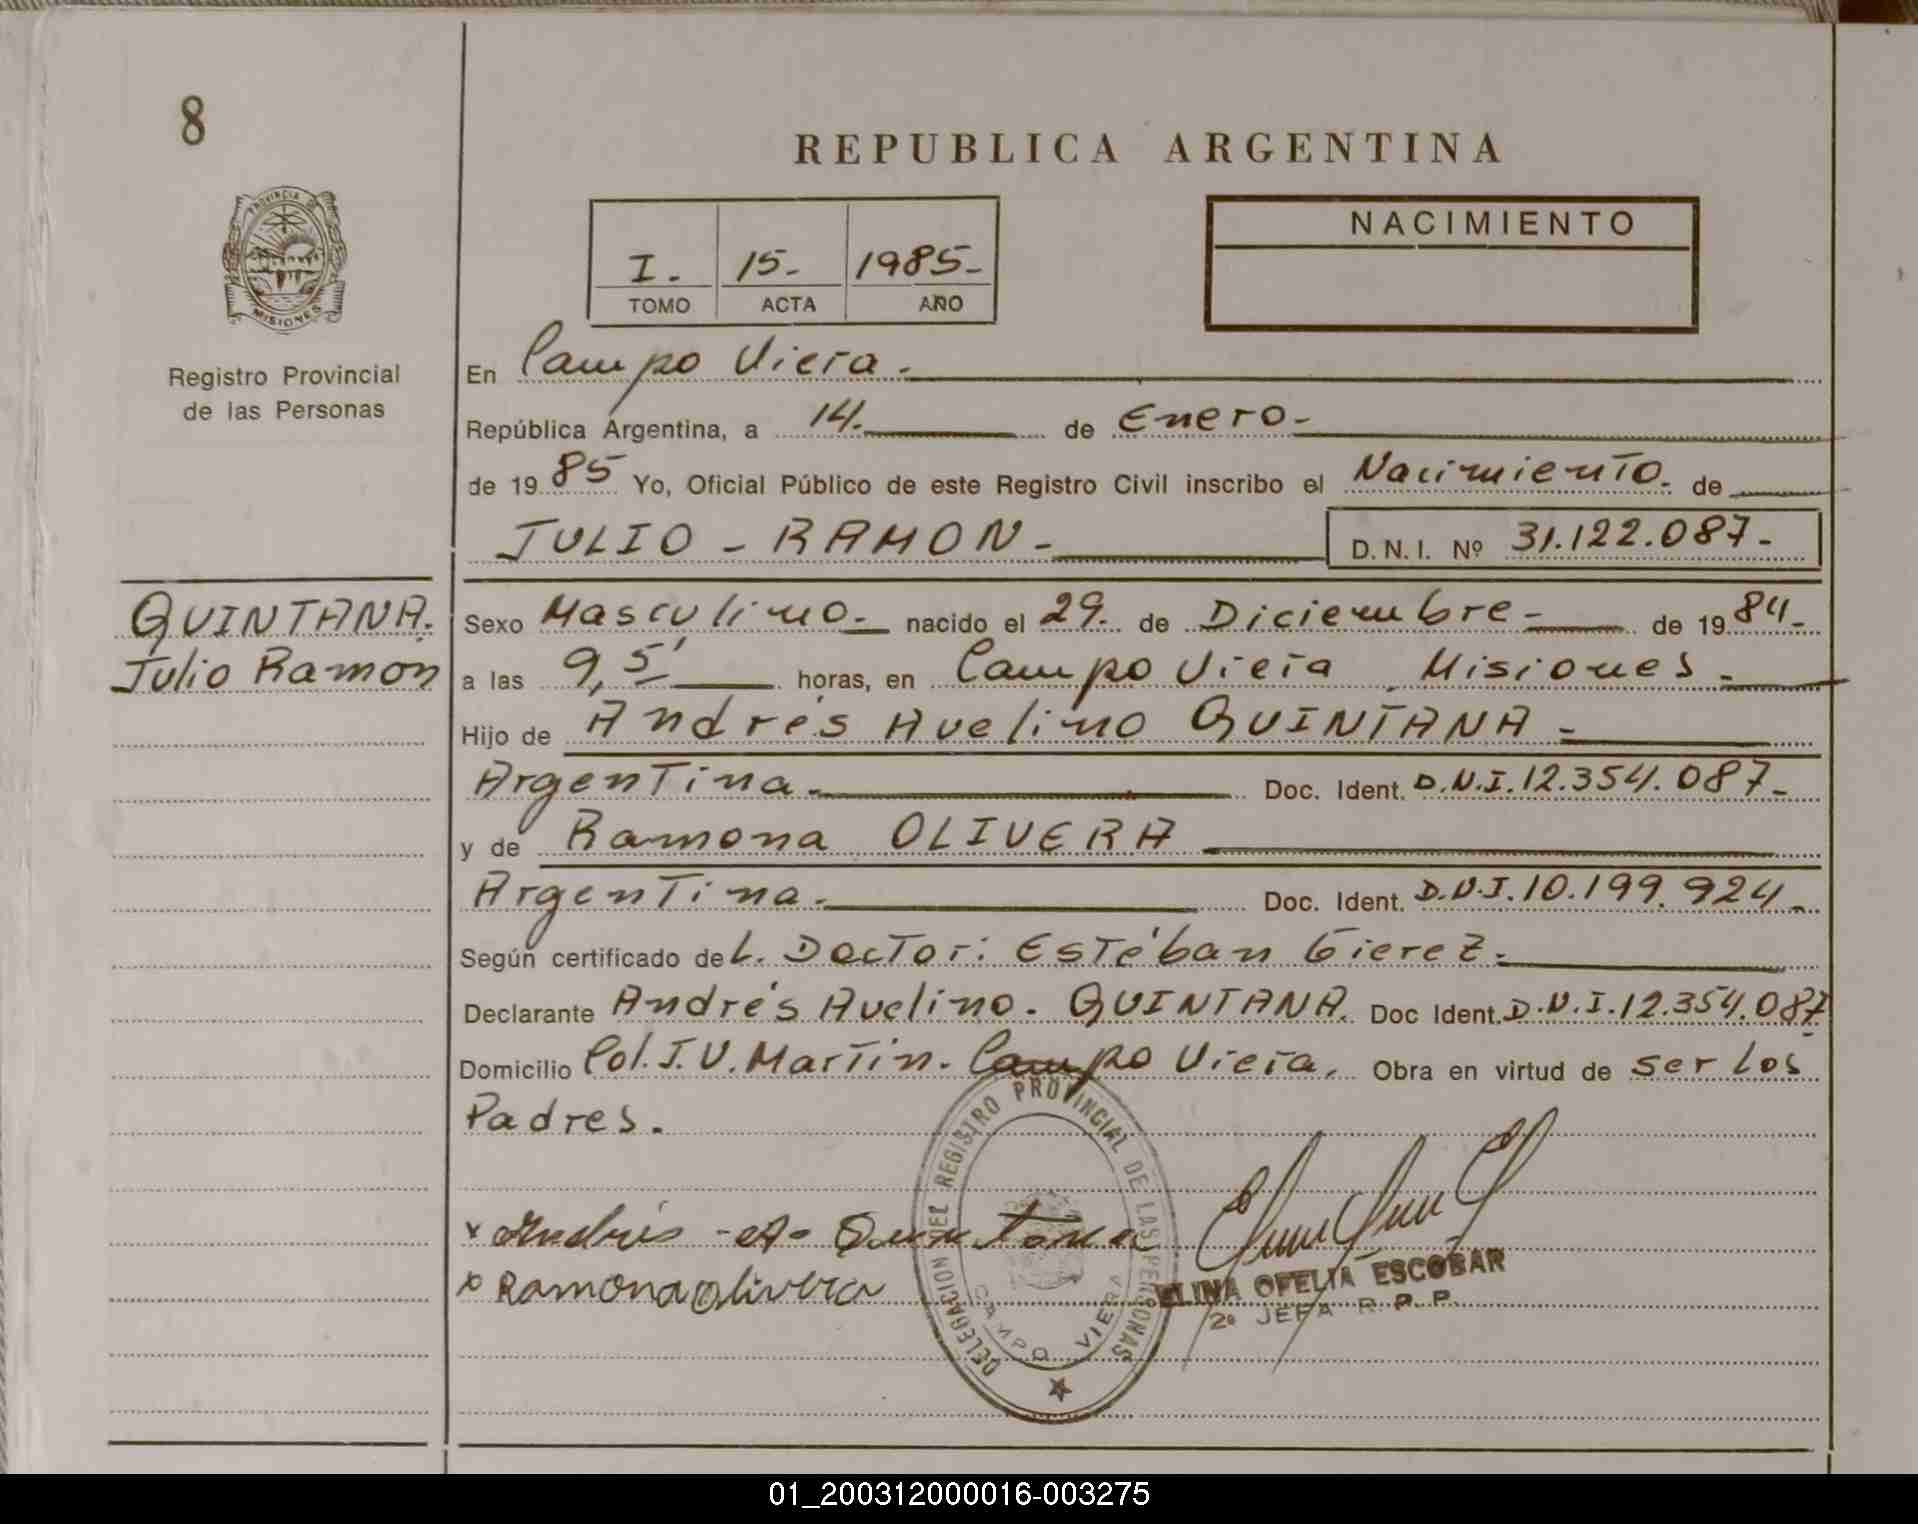 8
REPUBLICA ARGENTINA
PROVINCIA DE
MISIONES
Registro Provincial
de las Personas
I. 15- 1985-
TOMO ACTA AÑO
NACIMIENTO
En Campo Viera.
República Argentina, a 14. de Enero-
de 1985 Yo, Oficial Público de este Registro Civil inscribo el Nacimiento. de
JULIO - RAMON - D.N.I. Nº 31.122.087-
QUINTANA.
Julio Ramon
Sexo Masculino- nacido el 29. de Diciembre- de 1984-
a las 9,5' horas, en Campo Viera Misiones-
Hijo de Andrés Avelino QUINTANA-
Argentina. Doc. Ident. D.N.I. 12.354.087-
y de Ramona OLIVERA
Argentina. Doc. Ident. D.N.I. 10.199.924-
Según certificado del. Doctor: Estéban Gierez-
Declarante Andrés Avelino. QUINTANA. Doc Ident. D.N.I. 12.354.087
Domicilio Col. J.V. Martin. Campo Viera. Obra en virtud de ser los
Padres.
DELEGACION DEL REGISTRO PROVINCIAL DE LAS PERSONAS
CAMPO VIERA
x Andrés -A- Quintana
x Ramona Olivera
ELINA OFELIA ESCOBAR
2º JEFA R.P.P.
01_200312000016-003275